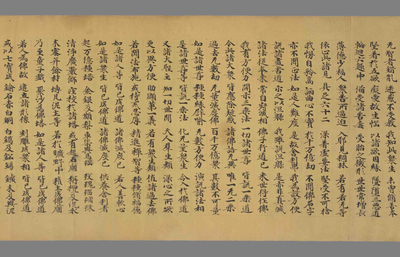 无智者錯亂 迷惑不受教 我知此眾生 未曾修善本
堅著於五欲 癡愛故生惱 以諸欲因緣 墜墮三惡道
輪迴六趣中 備受諸苦毒 受胎之微形 世世常增長
薄德少福人 眾苦所逼迫 入邪見稠林 若有若无等
依止此諸見 具足六十二 深著虛妄法 堅受不可捨
我慢自矜高 諂曲心不實 於千万億劫 不聞佛名字
亦不聞正法 如是人難度 是故舍利弗 我為設方便
說諸盡苦道 示之以涅槃 我雖說涅槃 是亦非真滅
諸法從本來 常自寂滅相 佛子行道已 來世得作佛
我有方便力 開示三乘法 一切諸世尊 皆說一乘道
今此諸大眾 皆應除疑惑 諸佛語无異 唯一无二乘
過去无數劫 无量滅度佛 百千万億種 其數不可量
如是諸世尊 種種緣譬喻 无數方便力 演說諸法相
是諸世尊等 皆說一乘法 化无量眾生 令入於佛道
又諸大聖主 知一切世間 天人群生類 深心之所欲
更以異方便 助顯第一義 若有眾生類 值諸過去佛
若聞法布施 或持戒忍辱 精進禪智等 種種修福德
如是諸人等 皆已成佛道 諸佛滅度已 若人善軟心
如是諸眾生 皆已成佛道 諸佛滅度已 供養舍利者
起万億種塔 金銀及頗梨 車𤦲與馬瑙 玫瑰琉璃珠
清淨廣嚴飾 莊校於諸塔 或有起石廟 栴檀及沉水
木樒并餘材 塼瓦泥土等 若於曠野中 積土成佛廟
乃至童子戲 聚沙為佛塔 如是諸人等 皆已成佛道
若人為佛故 建立諸形像 刻雕成眾相 皆已成佛道
或以七寶成 鍮石赤白銅 白鑞及鉛錫 鐵木及與泥